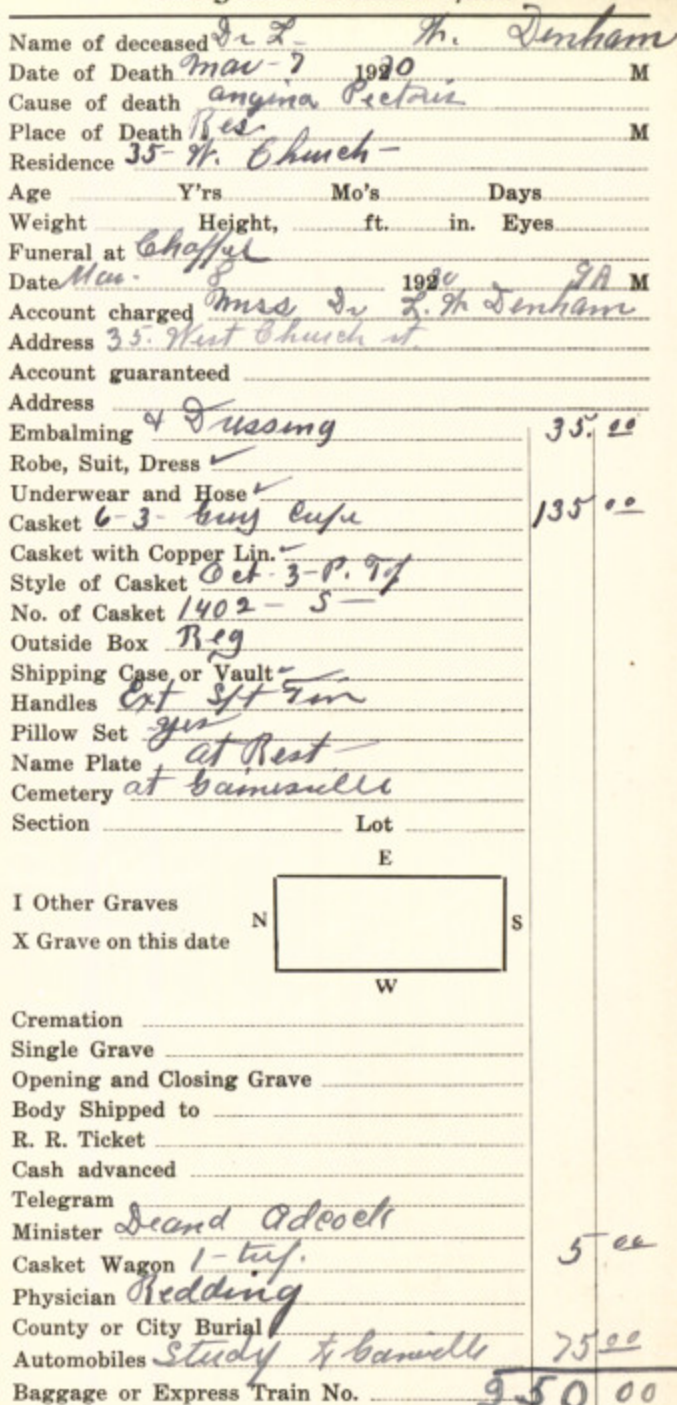 Name of deceased Dr L. W. Denham
Date of Death Mar-7 1930 M
Cause of death angina Pectoris
Place of Death Res. M
Residence 35- W. Church-
Age Y'rs Mo's Days
Weight Height, ft. in. Eyes
Funeral at Chappel
Date Mar. 8 1930 9 A M
Account charged Mrss Dr L. W Denham
Address 35. West Church st.
Account guaranteed
Address
Embalming & Dressing 35.00
Robe, Suit, Dress ✓
Underwear and Hose ✓
Casket 6-3- Grey Crepe 135 00
Casket with Copper Lin.
Style of Casket Oct-3-P.
No. of Casket 1402- S-
Outside Box Reg
Shipping Case or Vault
Handles Ext
Pillow Set yes
Name Plate at Rest
Cemetery at Gainesville
Section Lot
E
I Other Graves
N S
X Grave on this date
W
Cremation
Single Grave
Opening and Closing Grave
Body Shipped to
R. R. Ticket
Cash advanced
Telegram
Minister Deand Adcock
Casket Wagon 1- 5 00
Physician Redding
County or City Burial
Automobiles 75 00
Baggage or Express Train No. 250 00